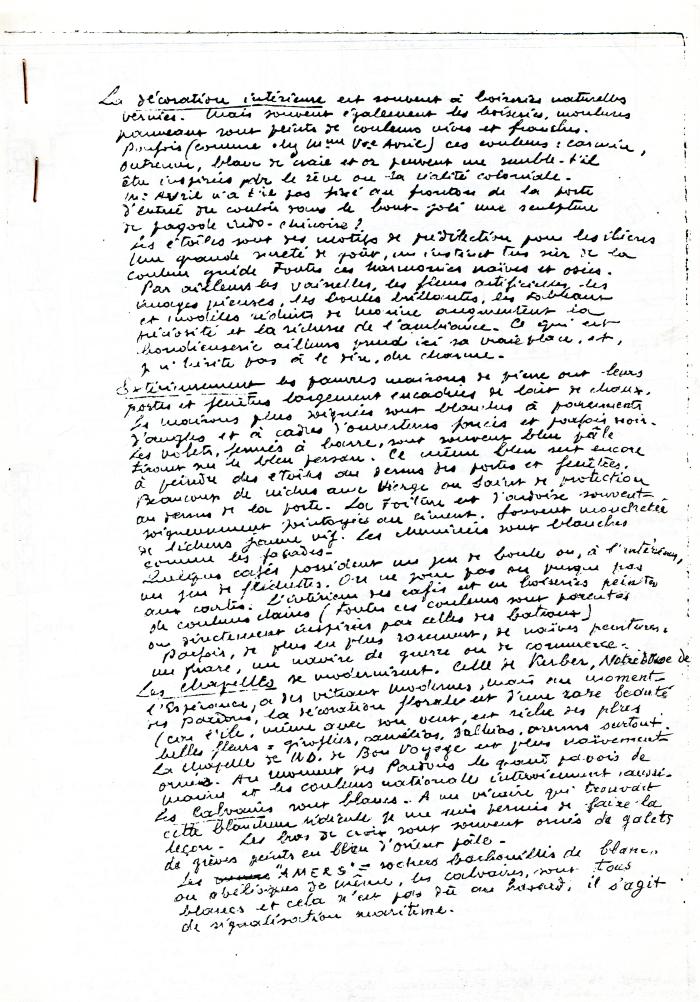 La décoration intérieure est souvent à boiseries naturelles
vernies. Mais souvent également les boiseries, moulures
panneaux sont peints de couleurs vives et franches.
Parfois (comme chez Mme Vve Avril) ces couleurs : carmin,
outremer, blanc de craie et or peuvent me semble-t-il
être inspirées par le rêve ou la réalité coloniale.
Mr Avril n'a t'il pas fixé au fronton de la porte
d'entrée du couloir sous le bout-joli une sculpture
de pagode indo-chinoise ?
Les étoiles sont des motifs de prédilection pour les iliens
Une grande sureté de goût, un instinct très sûr de la
couleur guide toutes ces harmonies naïves et osées.
Par ailleurs les vaisselles, les fleurs artificielles, les
images pieuses, les boules brillantes, les tableaux
et modèles réduits de marine augmentent la
préciosité et la richesse de l'ambiance. Ce qui est
bondieuserie ailleurs prend ici sa vraie place, et,
je n'hésite pas à le dire, du charme.
Extérieurement les pauvres maisons de pierre ont leurs
portes et fenêtres largement encadrées de lait de chaux.
Les maisons plus soignées sont blanches à parements
d'angles et à cadres d'ouvertures foncés et parfois noir.
Les volets, fermés à barre, sont souvent bleu pâle
tirant sur le bleu persan. Ce même bleu sert encore
à peindre des étoiles au dessus des portes et fenêtres.
Beaucoup de niches avec Vierge ou Saint de protection
au dessus de la porte. La toiture est d'ardoise souvent
soigneusement jointoyée au ciment. Souvent mouchetée
de lichens jaune vif. Les cheminées sont blanches
comme les façades.
Quelques cafés possèdent un jeu de boule ou, à l'intérieur,
un jeu de fléchettes. On ne joue pas ou presque pas
aux cartes. L'intérieur des cafés est en boiseries peintes
de couleurs claires (toutes ces couleurs sont parentes
ou directement inspirées par celles des bateaux)
Parfois, de plus en plus rarement, de naïves peintures :
un phare, un navire de guerre ou de commerce.
Les Chapelles se modernisent. Celle de Kerber, Notre Dame de
l'Espérance, a des vitraux modernes, mais au moment
des Pardons, la décoration florale est d'une rare beauté
(car l'île, même avec son vent, est riche des plus
belles fleurs = giroflées, camélias, dahlias, arums surtout.
La chapelle de N.D. de Bon Voyage est plus naïvement
ornée. Au moment des Pardons le grand pavois de
marine et les couleurs nationales interviennent aussi.
Les Calvaires sont blancs. A un vicaire qui trouvait
cette blancheur ridicule je me suis permis de faire la
leçon. Les bras de croix sont souvent ornés de galets
de grèves peints en bleu d'orient pâle.
Les "AMERS" = rochers barbouillés de blanc,
ou obélisques de même, les calvaires, sont tous
blancs et cela n'est pas dû au hasard, il s'agit
de signalisation maritime.